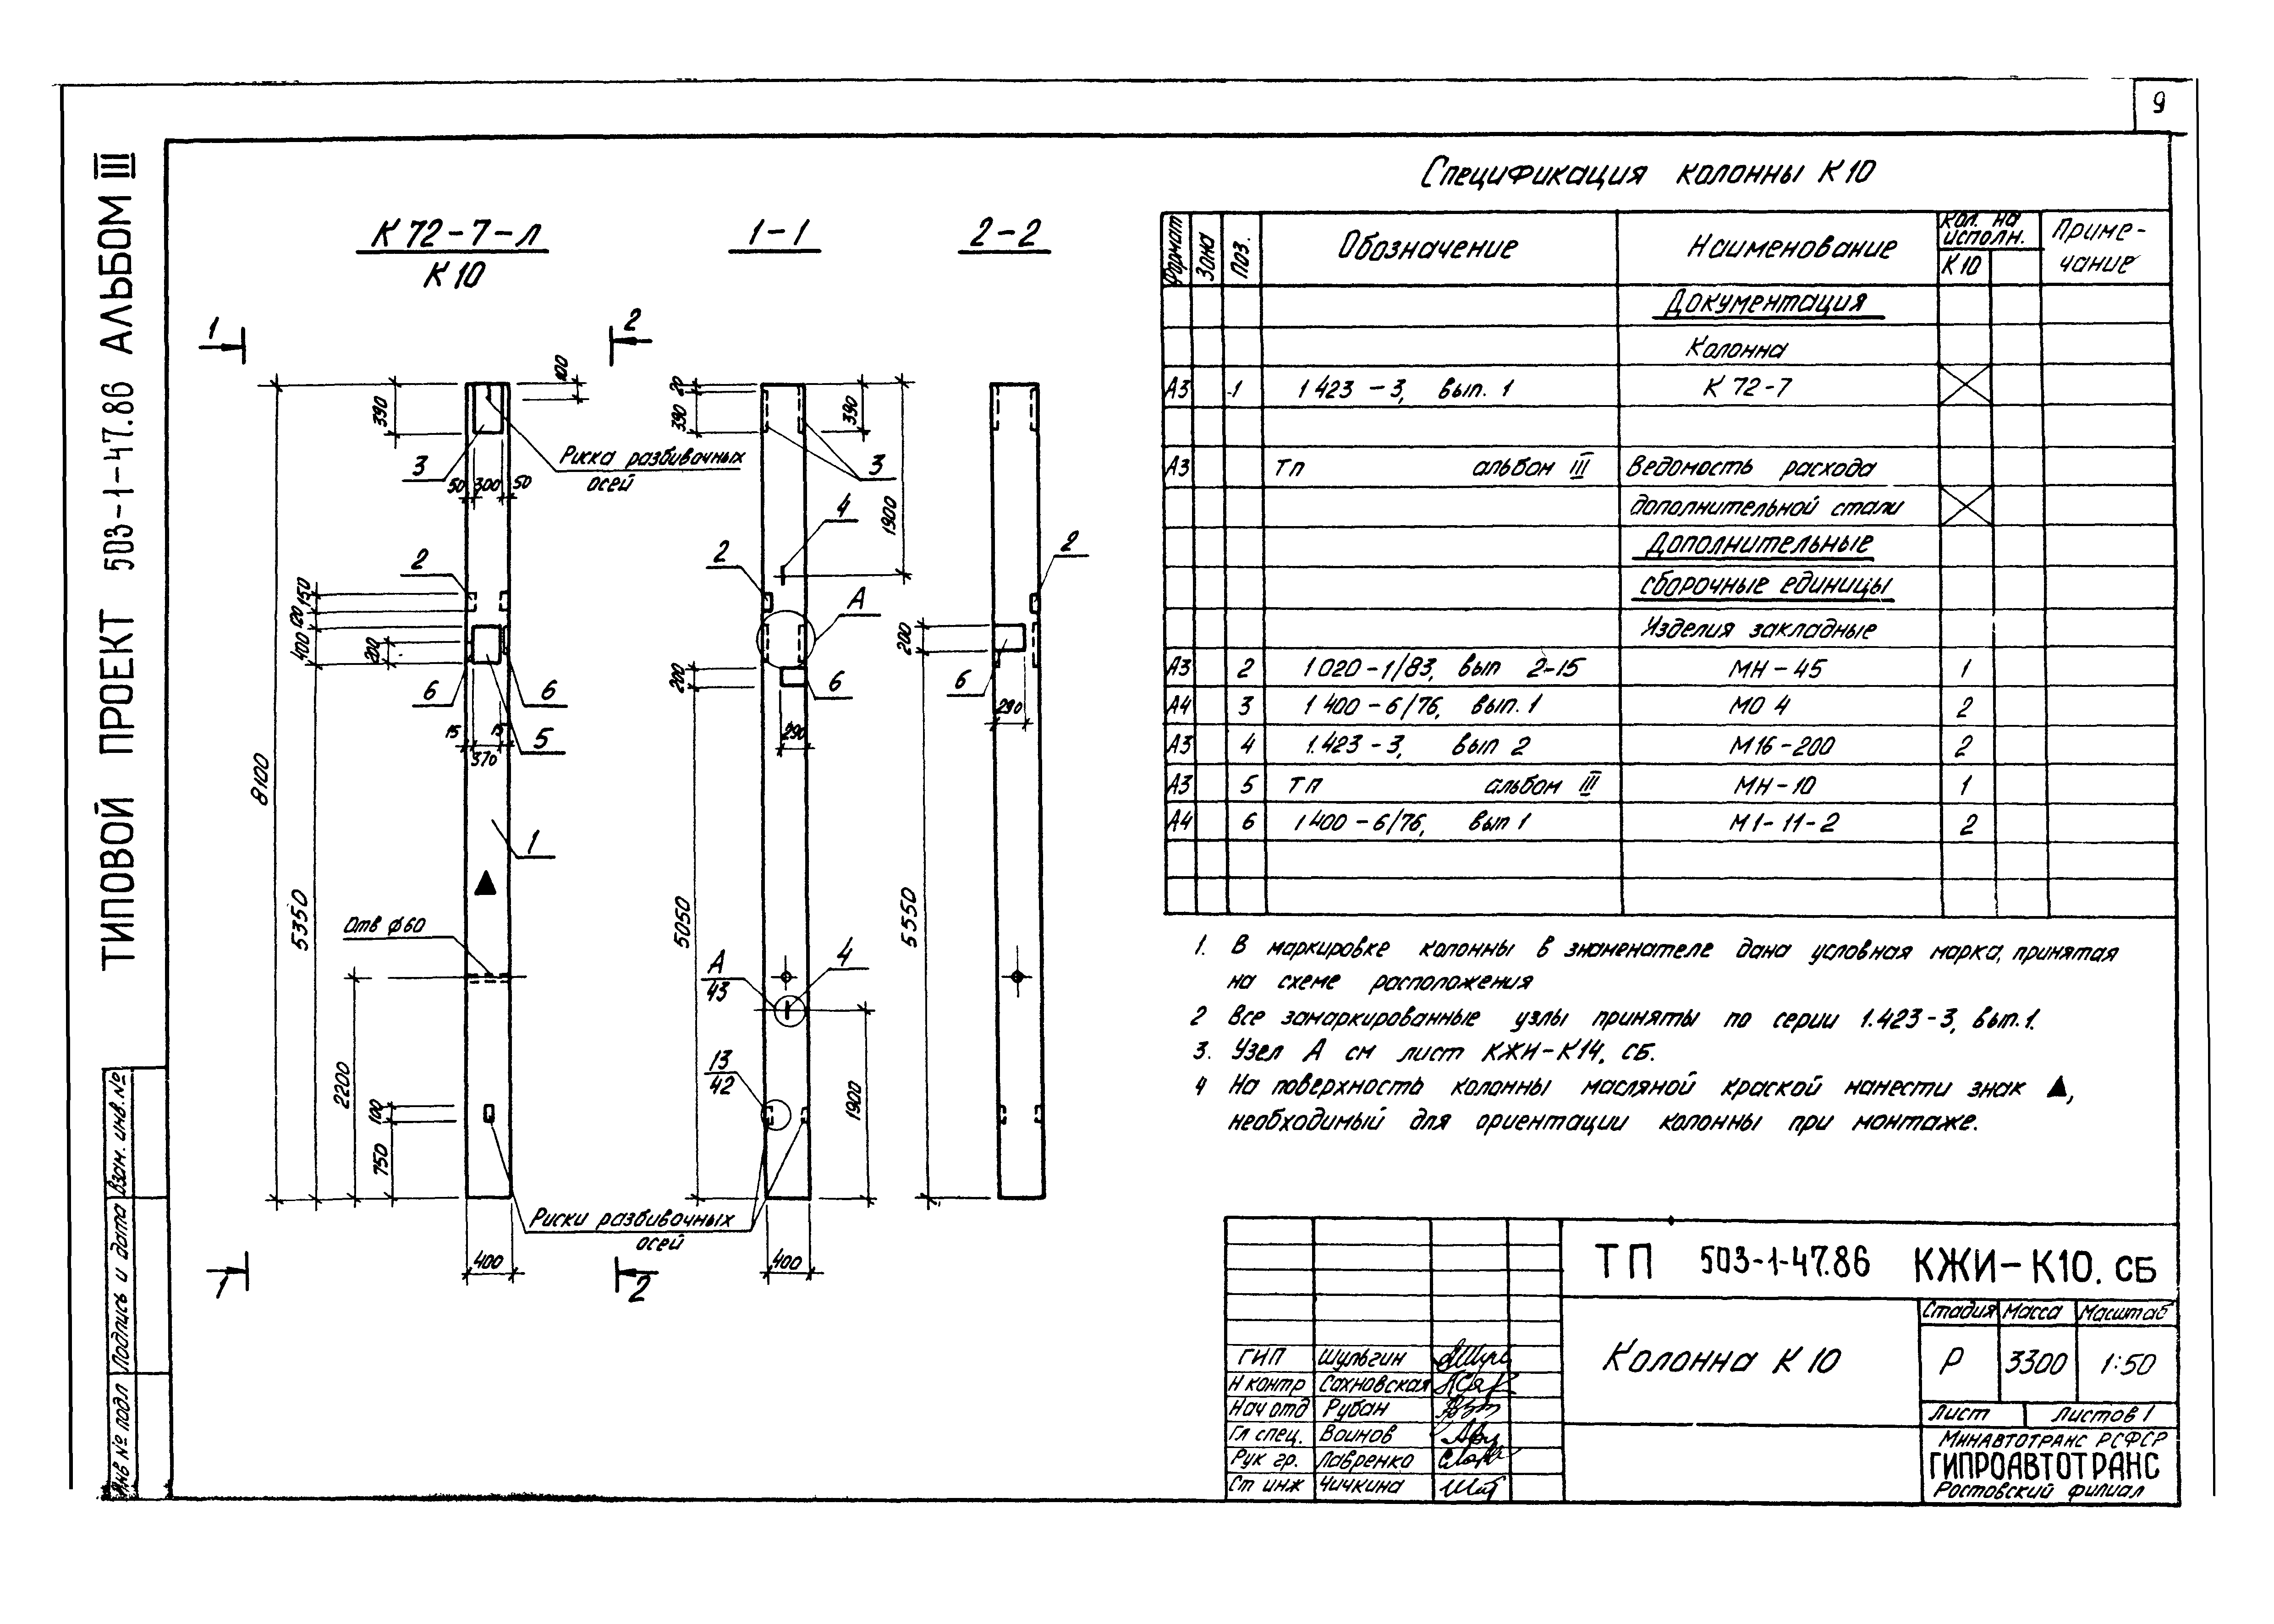 9
ТИПОВОЙ ПРОЕКТ 503-1-47.86 АЛЬБОМ III
К 72-7-Л
К 10
1-1
2-2
1
2
8100
5350
390
100
3
Риска разбивочных
осей
50 300 50
2
150
120
400
200
6
6
15
15
370
5
1
▲
Отв ϕ60
2200
100
750
Риски разбивочных
осей
400
1
2
20
390
390
3
4
1900
2
А
200
6
290
5050
А
43
4
13
42
1900
400
2
200
6
290
5550
Спецификация колонны К 10
Формат
Зона
Поз.
Обозначение
Наименование
Кол. на
исполн.
К 10
Приме-
чание
Документация
Колонна
А3 1 1 423 - 3, вып. 1 К 72-7
А3 ТП альбом III Ведомость расхода
дополнительной стали
Дополнительные
сборочные единицы
Изделия закладные
А3 2 1 020-1/83, вып 2-15 МН-45 1
А4 3 1 400-6/76, вып. 1 МО 4 2
А3 4 1.423-3, вып 2 М16-200 2
А3 5 ТП альбом III МН-10 1
А4 6 1 400-6/76, вып 1 М1-11-2 2
1. В маркировке колонны в знаменателе дана условная марка, принятая
на схеме расположения
2 Все замаркированные узлы приняты по серии 1.423-3, вып.1.
3. Узел А см лист КЖИ-К14, СБ.
4 На поверхность колонны масляной краской нанести знак ▲,
необходимый для ориентации колонны при монтаже.
ТП 503-1-47.86 КЖИ-К10. СБ
Колонна К 10
Стадия Масса Масштаб
Р 3300 1:50
Лист Листов 1
Минавтотранс РСФСР
ГИПРОАВТОТРАНС
Ростовский филиал
ГИП Шульгин
Н контр Сахновская
Нач отд Рубан
Гл спец. Воинов
Рук гр. Лавренко
Ст инж Чичкина
Инв № подл Подпись и дата Взам. инв. №